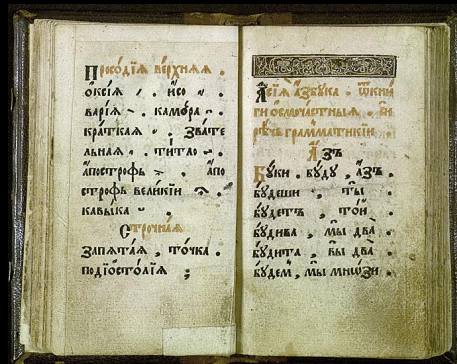 Просодїѧ верхнѧѧ .
ѻксїѧ ⸝ . исо .
варїѧ . камора .
краткаѧ . звате
льнаѧ . титло .
апострофъ . апо
строфъ великїи .
кавыка .
Строчнаѧ
запѧтаѧ , точка .
подїостолїѧ ;
А сїѧ азбука . ѿ кни
ги осмочастныѧ . си
рѣчь грамматикїи .
Азъ
Буки . буду , азъ .
будеши , ты .
будетъ , той .
будива , мы два .
будита , вы два .
будем , мы мнѡзи .